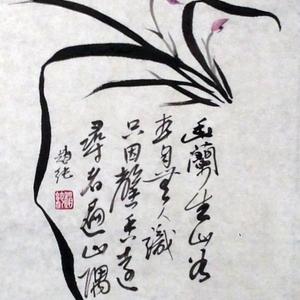 幽蘭生山谷
本自無人識
只因馨香遠
尋者遍山隅